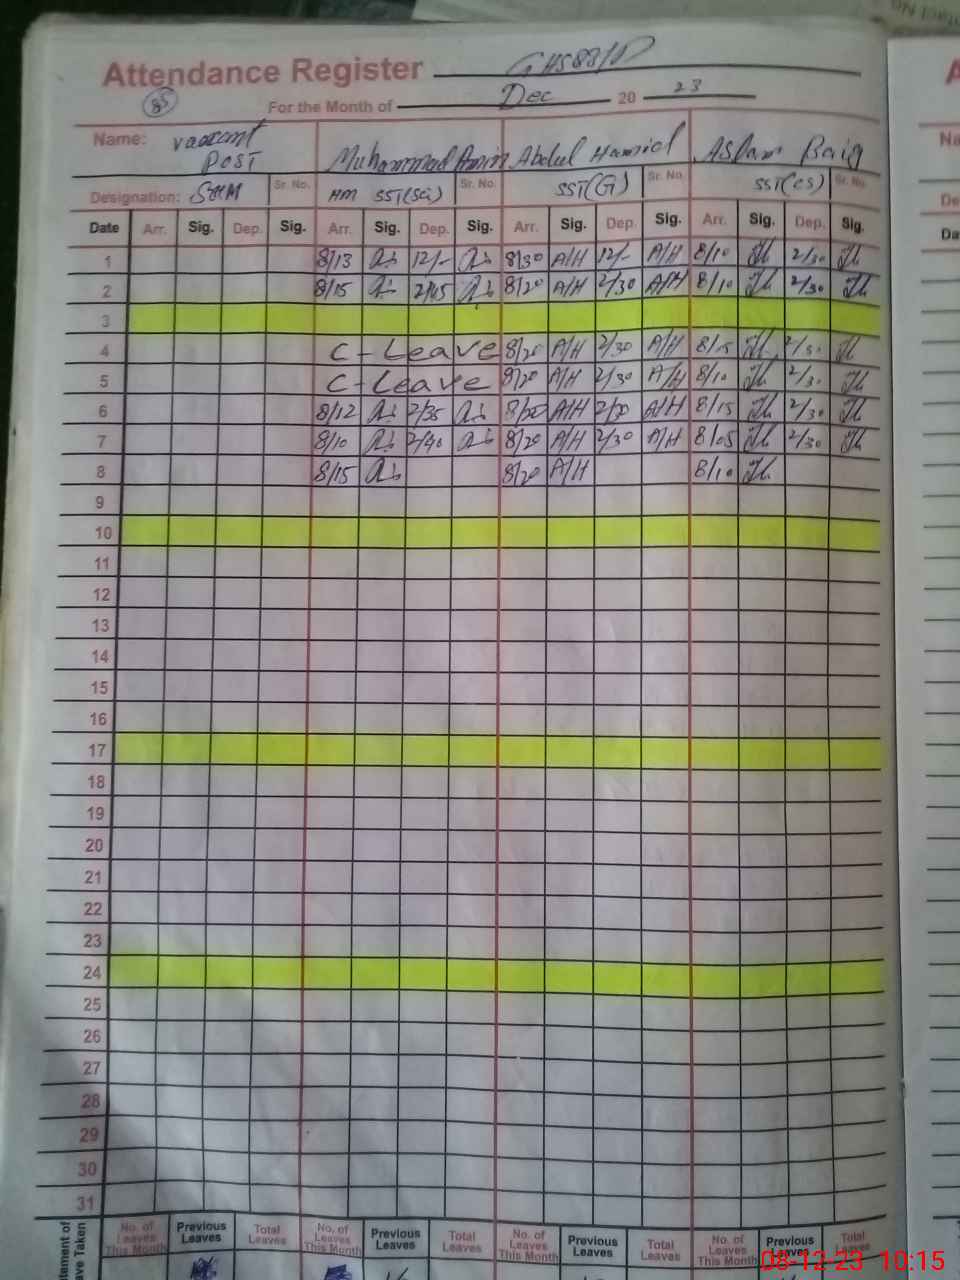 Attendance Register GHS 88/D
85 For the Month of Dec 20 23
Name: vaccant Post Muhammad Amin Abdul Hamid Aslam Baig
Designation: SHM Sr. No. HM SST(Sci) Sr. No. SST(G) Sr. No. SST(CS) Sr. No.
Date Arr. Sig. Dep. Sig. Arr. Sig. Dep. Sig. Arr. Sig. Dep. Sig. Arr. Sig. Dep. Sig.
1 8/13 12/- 8/30 A/H 12/- A/H 8/10 2/30
2 8/15 2/45 8/20 A/H 2/30 A/H 8/10 2/30
3
4 C-Leave 8/20 A/H 2/30 A/H 8/15 2/30
5 C-Leave 8/20 A/H 2/30 A/H 8/10 2/30
6 8/12 2/35 8/20 A/H 2/30 A/H 8/15 2/30
7 8/10 2/40 8/20 A/H 2/30 A/H 8/05 2/30
8 8/15 8/20 A/H 8/10
9
10
11
12
13
14
15
16
17
18
19
20
21
22
23
24
25
26
27
28
29
30
31
No. of Leaves This Month Previous Leaves Total Leaves No. of Leaves This Month Previous Leaves Total Leaves No. of Leaves This Month Previous Leaves Total Leaves No. of Leaves This Month Previous Leaves Total Leaves
08-12-23 10:15